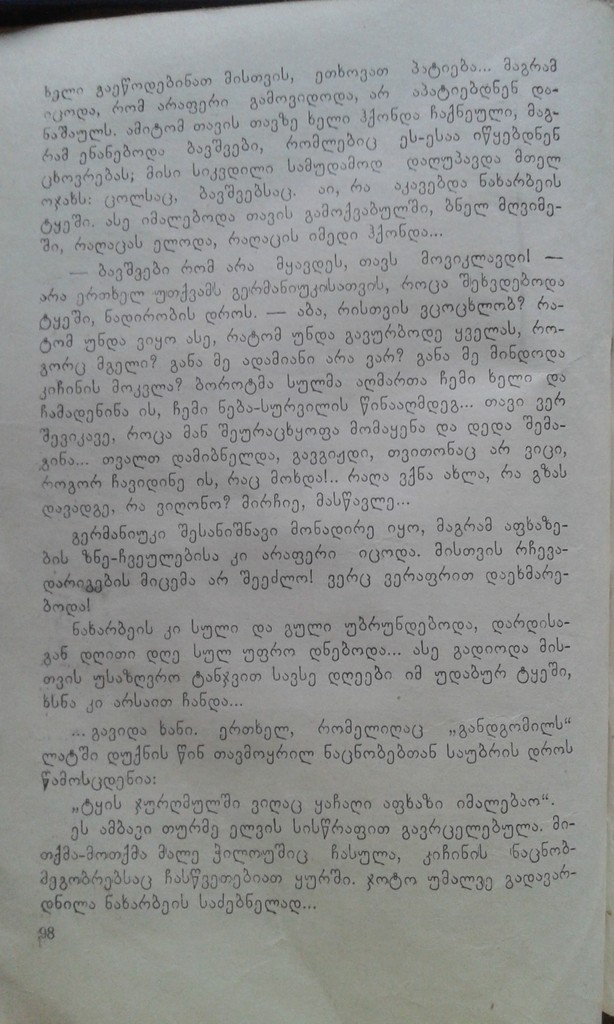 ხელი გაეწოდებინათ მისთვის, ეთხოვათ პატიება... მაგრამ
იცოდა, რომ არაფერი გამოვიდოდა, არ აპატიებდნენ და-
ნაშაულს. ამიტომ თავის თავზე ხელი ჰქონდა ჩაქნეული, მაგ-
რამ ენანებოდა ბავშვები, რომლებიც ეს-ესაა იწყებდნენ
ცხოვრებას; მისი სიკვდილი სამუდამოდ დაღუპავდა მთელ
ოჯახს: ცოლსაც, ბავშვებსაც. აი, რა აკავებდა ნახარბეის
ტყეში. ასე იმალებოდა თავის გამოქვაბულში, ბნელ მღვიმე-
ში, რაღაცას ელოდა, რაღაცის იმედი ჰქონდა...
— ბავშვები რომ არა მყავდეს, თავს მოვიკლავდი! —
არა ერთხელ უთქვამს გერმანიუკისათვის, როცა შეხვდებოდა
ტყეში, ნადირობის დროს. — აბა, რისთვის ვცოცხლობ? რა-
ტომ უნდა ვიყო ასე, რატომ უნდა გავურბოდე ყველას, რო-
გორც მგელი? განა მე ადამიანი არა ვარ? განა მე მინდოდა
კიჩინის მოკვლა? ბოროტმა სულმა აღმართა ჩემი ხელი და
ჩამადენინა ის, ჩემი ნება-სურვილის წინააღმდეგ... თავი ვერ
შევიკავე, როცა მან შეურაცხყოფა მომაყენა და დედა შემა-
გინა... თვალთ დამიბნელდა, გავგიჟდი, თვითონაც არ ვიცი,
როგორ ჩავიდინე ის, რაც მოხდა!.. რაღა ვქნა ახლა, რა გზას
დავადგე, რა ვიღონო? მირჩიე, მასწავლე...
გერმანიუკი შესანიშნავი მონადირე იყო, მაგრამ აფხაზე-
ბის ზნე-ჩვეულებისა კი არაფერი იცოდა. მისთვის რჩევა-
დარიგების მიცემა არ შეეძლო! ვერც ვერაფრით დაეხმარე-
ბოდა!
ნახარბეის კი სული და გული უბრუნდებოდა, დარდისა-
გან დღითი დღე სულ უფრო დნებოდა... ასე გადიოდა მის-
თვის უსაზღვრო ტანჯვით სავსე დღეები იმ უდაბურ ტყეში,
ხსნა კი არსაით ჩანდა...
...გავიდა ხანი. ერთხელ, რომელიღაც „განდგომილს“
ლატში დუქნის წინ თავმოყრილ ნაცნობებთან საუბრის დროს
წამოსცდენია:
„ტყის ჯურღმულში ვიღაც ყაჩაღი აფხაზი იმალებაო“.
ეს ამბავი თურმე ელვის სისწრაფით გავრცელებულა. მი-
თქმა-მოთქმა მალე ჭილოუშიც ჩასულა, კიჩინის ნაცნობ-
მეგობრებსაც ჩასწვეთებიათ ყურში. ჯოტო უმალვე გადავარ-
დნილა ნახარბეის საძებნელად...
98